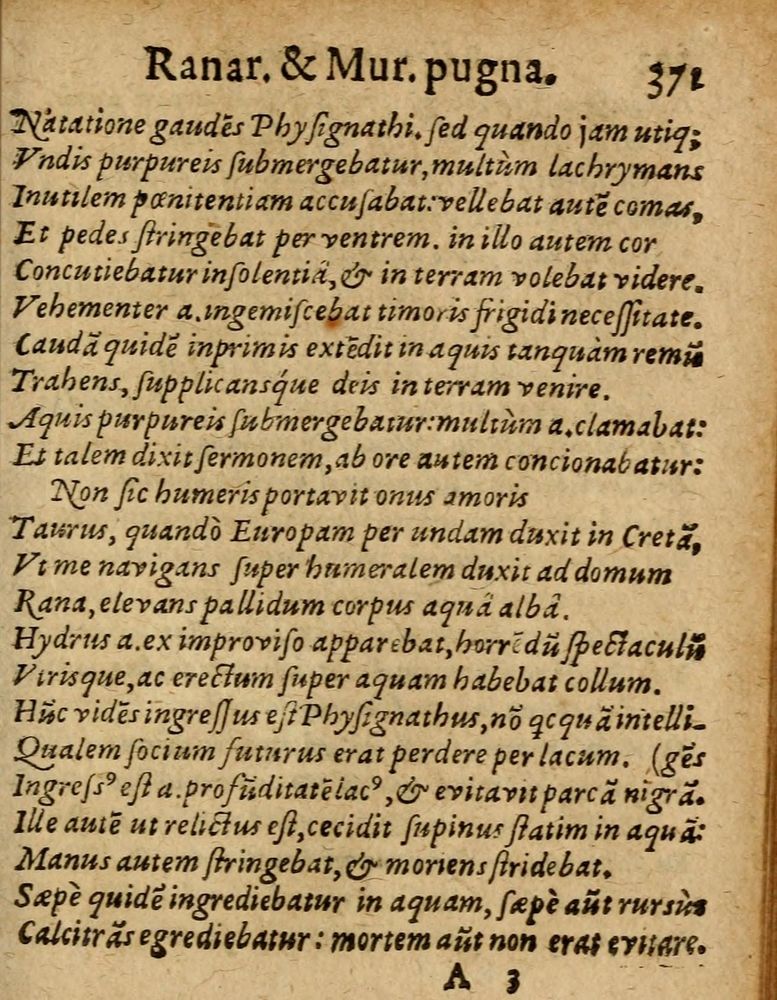 Ranar. & Mur. pugna. 371
Natatione gaudēs Phyſignathi. ſed quando jam utiq;
Vndis purpureis ſubmergebatur, multùm lachrymans
Inutilem pœnitentiam accuſabat: vellebat autē comas,
Et pedes ſtringebat per ventrem. in illo autem cor
Concutiebatur inſolentiâ, & in terram volebat videre.
Vehementer a. ingemiſcebat timoris frigidi neceſſitate.
Caudā quidē inprimis extēdit in aquis tanquàm remū
Trahens, ſupplicansq́ue deis in terram venire.
Aquis purpureis ſubmergebatur: multùm a. clamabat:
Et talem dixit ſermonem, ab ore autem concionabatur:
Non ſic humeris portavit onus amoris
Taurus, quandò Europam per undam duxit in Cretā,
Vt me navigans ſuper humeralem duxit ad domum
Rana, elevans pallidum corpus aquâ albâ.
Hydrus a. ex improviſo apparebat, horrēdū ſpectaculū
Vtrisque, ac erectum ſuper aquam habebat collum.
Hūc vidēs ingreſſus eſt Phyſignathus, nō qcquā intelli-
Qualem ſocium futurus erat perdere per lacum. (gēs
Ingreſsꝰ eſt a. profūditatē lacꝰ, & evitavit parcā nigrā.
Ille autē ut relictus eſt, cecidit ſupinus ſtatim in aquā:
Manus autem ſtringebat, & moriens ſtridebat.
Sæpè quidē ingrediebatur in aquam, ſæpè aūt rursùs
Calcitrās egrediebatur: mortem aūt non erat evitare.
A 3